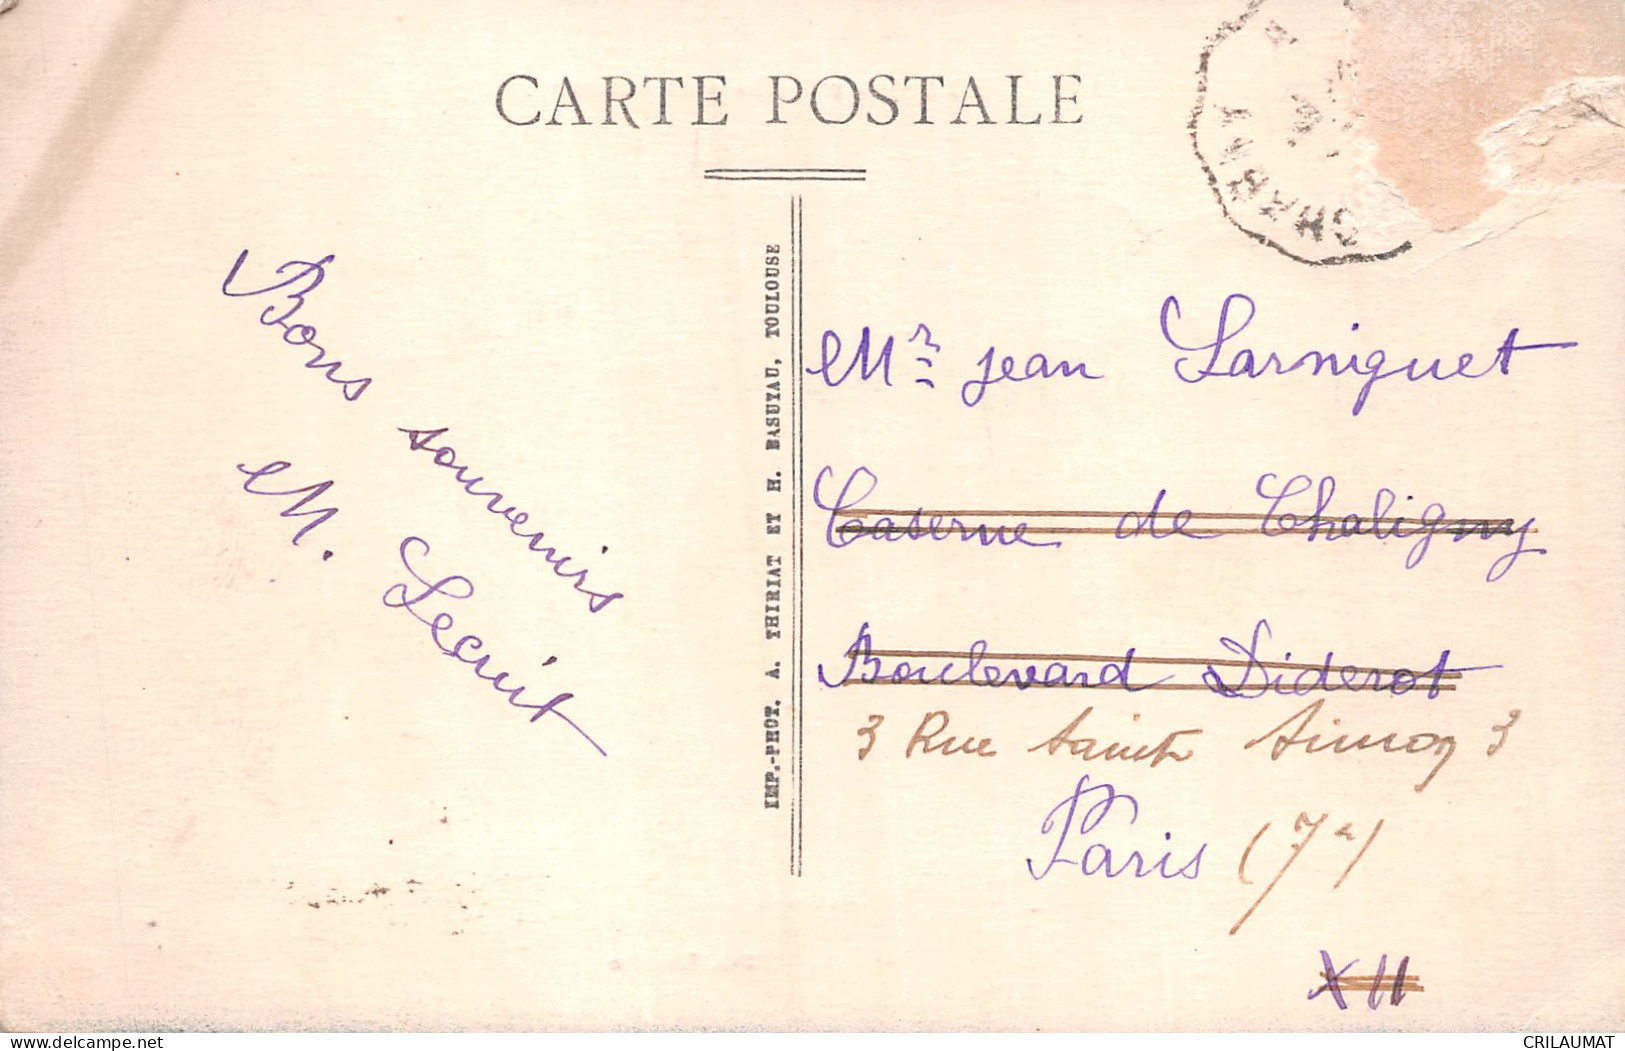 CARTE POSTALE
CHARNY
Bons souvenirs
M. Lecuit
IMP.-PHOT. A. THIRIAT ET H. BASUYAU, TOULOUSE
Mr Jean Larniguet
Caserne de Chaligny
Boulevard Diderot
3 Rue Saint Simon 3
Paris (7e)
XII
CRILAUMAT